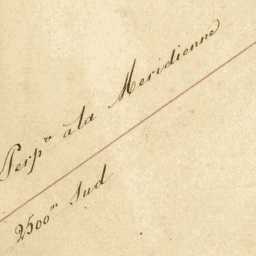 Perpre à la Meridienne
2500m Sud